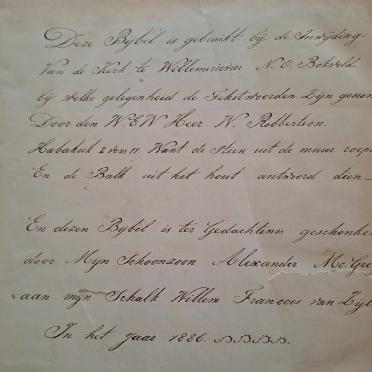 Deze Bybel is gebruikt bij de Inwijding:
Van de Kerk te Willemsrivier N. O. Bokveld.
bij welke gelegenheid de Tekstwoorden Zijn genom
Door den W.E.W Heer W. Robbertson.
Habakuk 2 vers 11. Want de Steen uit de muur roep
En de Balk uit het hout antwoord dien
En dezen Bybel is ter Gedachtenis geschenke
door Mijn Schoonzoon Alexander Mc. Gre
aan mijn Schalk Willem Francois van Zijl
In het jaar 1886.